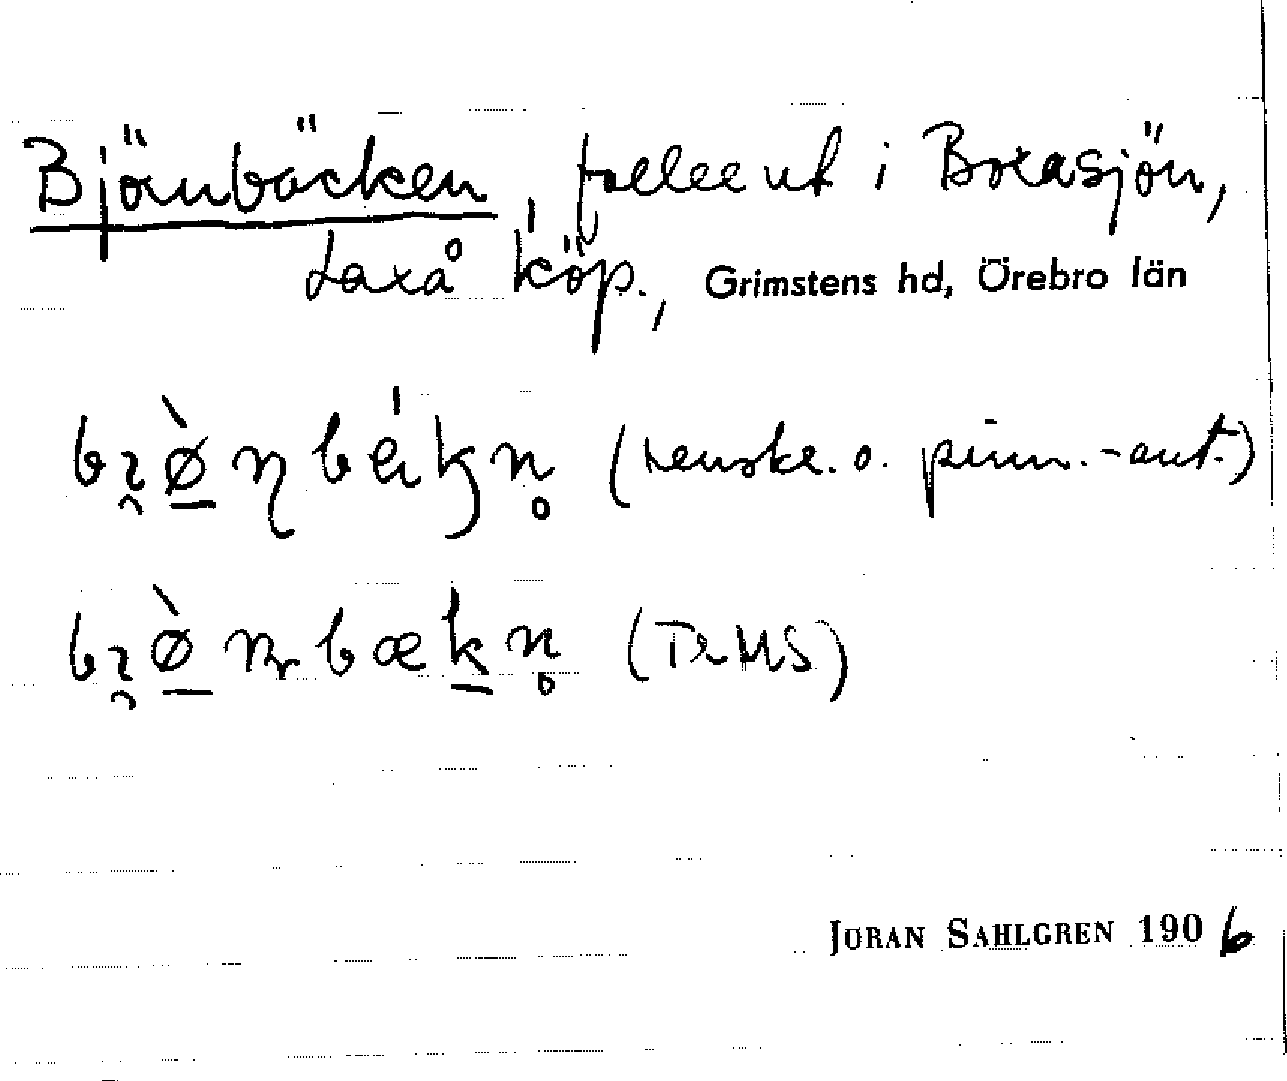 Björnbäcken, faller ut i Borasjön,
Laxå köp., Grimstens hd, Örebro län
(renskr. o. prim.-ant.)
(TrHS)
JÖRAN SAHLGREN 1906